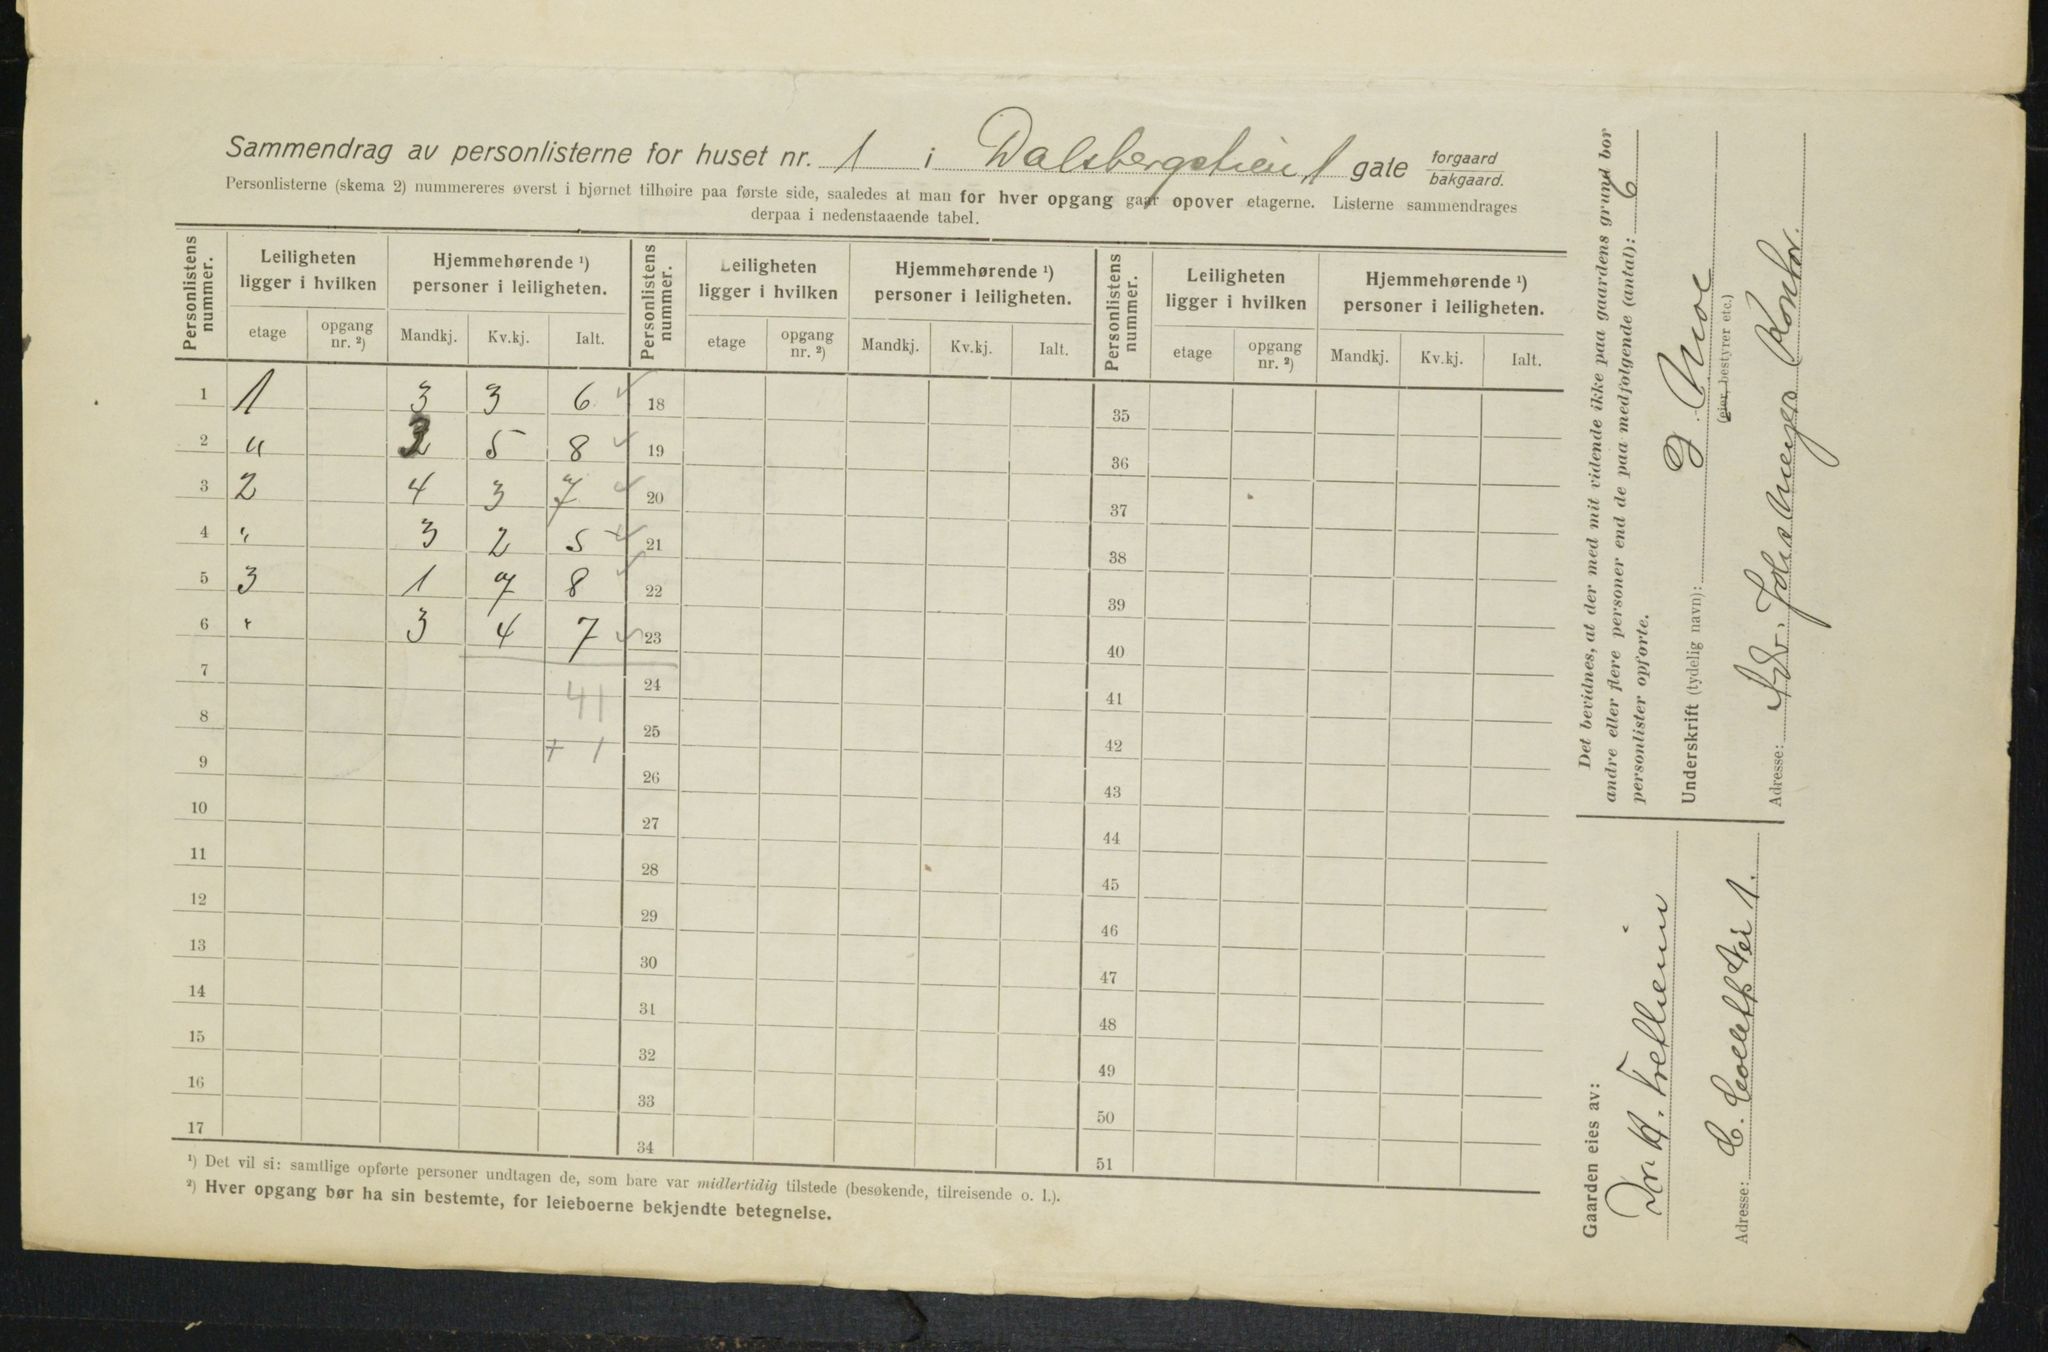 Sammendrag av personlisterne for huset nr. 1 i Dalsbergstien 1 gate forgaard bakgaard.
Personlisterne (skema 2) nummereres øverst i hjørnet tilhøire paa første side, saaledes at man for hver opgang gaar opover etagerne. Listerne sammendrages
derpaa i nedenstaaende tabel.
Personlistens nummer. Leiligheten ligger i hvilken Hjemmehørende ¹) personer i leiligheten. Personlistens nummer. Leiligheten ligger i hvilken Hjemmehørende ¹) personer i leiligheten. Personlistens nummer. Leiligheten ligger i hvilken Hjemmehørende ¹) personer i leiligheten.
etage opgang nr. ²) Mandkj. Kv.kj. Ialt. etage opgang nr. ²) Mandkj. Kv.kj. Ialt. etage opgang nr. ²) Mandkj. Kv.kj. Ialt.
1 1 3 3 6 18 35
2 " 3 5 8 19 36
3 2 4 3 7 20 37
4 " 3 2 5 21 38
5 3 1 7 8 22 39
6 " 3 4 7 23 40
7 41 24 41
8 + 1 25 42
9 26 43
10 27 44
11 28 45
12 29 46
13 30 47
14 31 48
15 32 49
16 33 50
17 34 51
¹) Det vil si: samtlige opførte personer undtagen de, som bare var midlertidig tilstede (besøkende, tilreisende o. l.).
²) Hver opgang bør ha sin bestemte, for leieboerne bekjendte betegnelse.
Det bevidnes, at der med mit vidende ikke paa gaardens grund bor
andre eller flere personer end de paa medfølgende (antal): 6
personlister opførte.
Underskrift (tydelig navn): J. Moe
(eier, bestyrer etc.)
Adresse: Adv. Kontor.
Gaarden eies av:
H.
Adresse: C. 1.